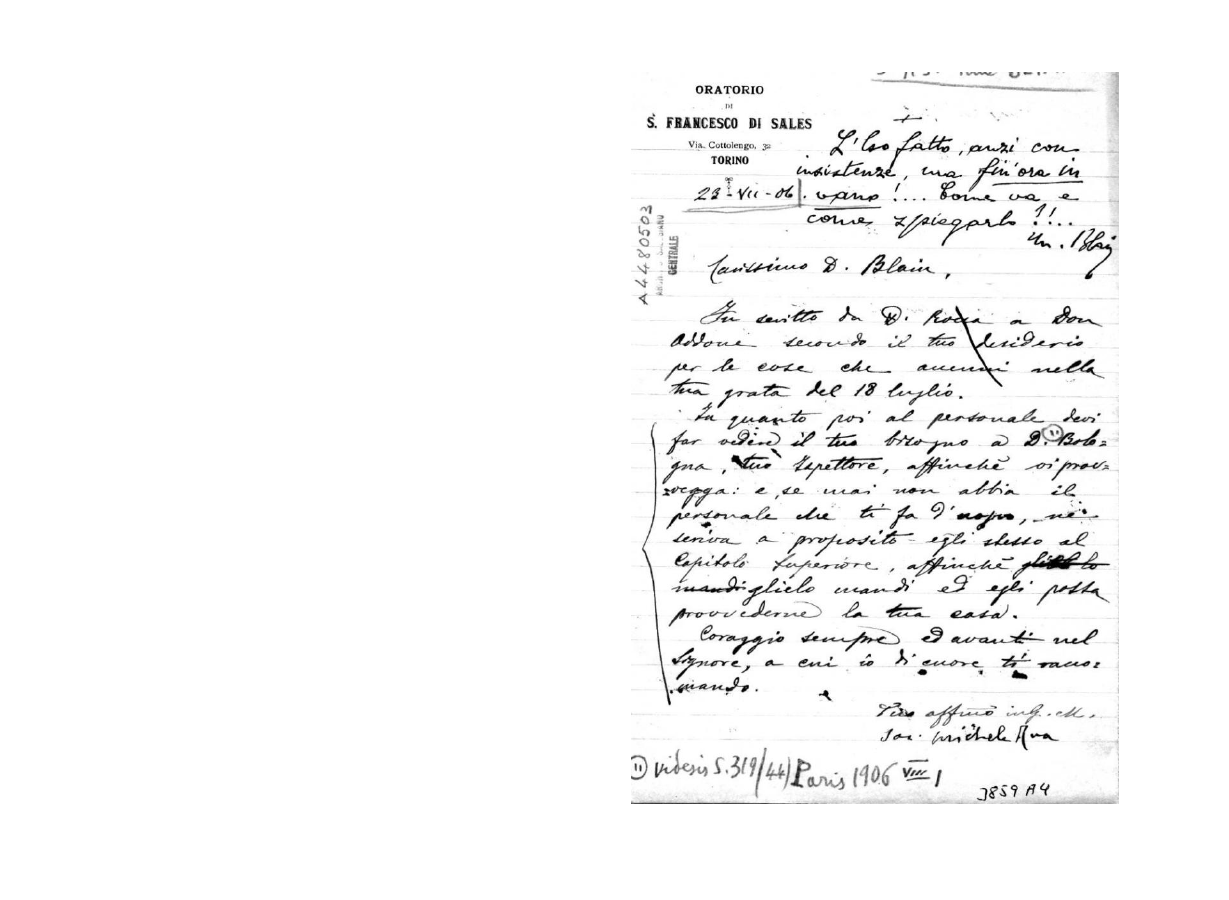 ORATORIO
DI
S. FRANCESCO DI SALES
Via Cottolengo, 32
TORINO
23-VII-06
L'ho fatto, anzi con
insistenze, ma fin'ora in
vano!... Come va e
come spiegarlo?!..
m. Blain
A4480503
CENTRALE
Carissimo D. Blain,
Fu scritto da D. Rocca a Don
Addone secondo il tuo desiderio
per le cose che accenni nella
tua grata del 18 luglio.
In quanto poi al personale devi
far vedere il tuo bisogno a D. Bolo=
gna, tuo Ispettore, affinchè vi prov=
=vegga: e, se mai non abbia il
personale che ti fa d'uopo, ne
scriva a proposito egli stesso al
Capitolo Superiore, affinchè
mandi glielo mandi ed egli possa
provvederne la tua casa.
Coraggio sempre ed avanti nel
Signore, a cui io di cuore ti racco=
mando.
Tuo affmo in G. e M.
Sac. Michele Rua
11) videsis S.319/44) Paris 1906 VIII 1
3859 A4